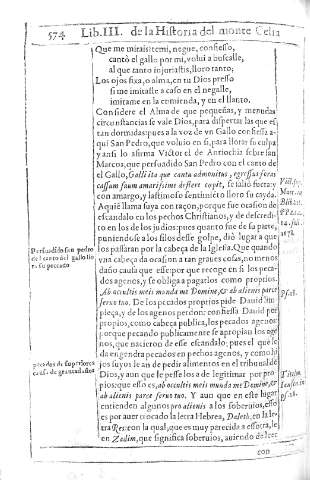 574 Lib. III. de la Historia del monte Celia
Que me miraste temi, negue, confiesso,
canto el gallo por mi, voluì a buscalle,
al que tanto injuriastis, lloro tanto;
Los ojos fixa, o alma, en tu Dios presso
si me imitaste a caso en el negalle,
imitame en la enmienda, y en el llanto.
Considere el Alma de que pequeñas, y menudas
circunstancias se vale Dios, para dispertar las que es
tan dormidas: pues a la voz de vn Gallo confiessa a-
qui San Pedro, que voluio en si, para llorar su culpa
y ansi lo afirma Victor el de Antiochia sobre san
Marcos, que persuadido San Pedro con el canto de
el Gallo, Galli ita que cantu admonitus, egressus foras
cassam suam amarissime deflere cœpit, se salio fuera: y
con amargo, y lastimoso sentimiento lloro su cayda.
Aqui el llama suya con raçon, porque fue ocasion de
escandalo en los pechos Christianos, y de descredi-
to en los de los judios: pues quanto fue de su parte,
puniendose a los filos desse golpe, diò lugar a que
los passaran por la cabeça de la Iglesia. Que quando
vna cabeça da ocasion a tan graues cosas, no menos
daño causa que esse: por que recoge en si los peca-
dos agenos, y se obliga a pagarlos como propios.
Ab occultis meis munda me Domine, & ab alienis parce
seruo tuo. De los pecados proprios pide Dauid lim-
pieça, y de los agenos perdon: confiessa Dauid por
propios, como cabeça publica, los pecados agenos:
porque pecando publicamente se apropian los age-
nos, que nacieron de esse escandalo; pues el que le
da engendra pecados en pechos agenos, y como hi
jos suyos le an de pedir alimentos en el tribunal de
Dios, y aun que le pesse los a de legitimar por pro-
pios: que esso es, ab occultis meis munda me Domine, &
ab alienis parce seruo tuo. Y aun que en este lugar
entienden algunos pro alienis a los soberuios, esso
es por auer trocado la letra Hebrea, Daleth, en la le-
tra Res: con la qual, que es muy parecida a essotra, le
en Zedim, que significa soberuios, auiendo de leer
con
Persuadido san pedro
del canto del gallo llo
ra su peccado
pecados de superiores
causa de grandes daños
Marc. 14.
Psal. 18.
Psal. 18.